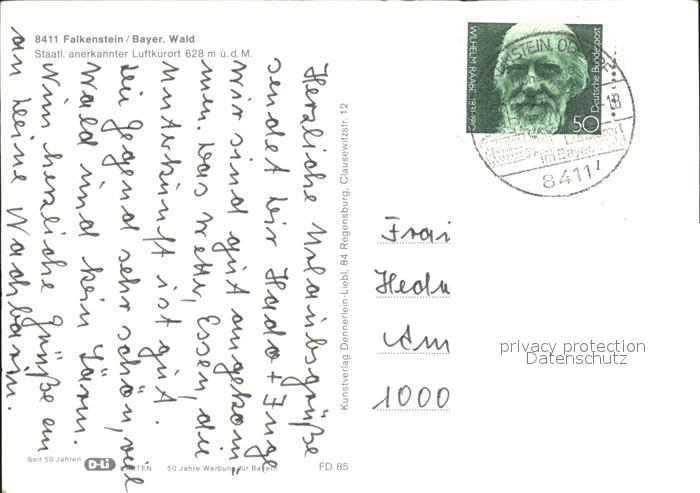 8411 Falkenstein / Bayer. Wald
Staatl. anerkannter Luftkurort 628 m ü. d. M.
Herzliche Urlaubsgrüße
sendet Dir Hado + Inge
Wir sind gut angekom=
men. Das Wetter, Essen, die
Unterkunft ist gut.
Die Gegend sehr schön, viel
Wald und kein Lärm.
Nimm herzliche Grüße an
an Deine Nachbarin.
Kunstverlag Dennerlein-Liebl, 84 Regensburg, Clausewitzstr. 12
WILHELM RAABE 1831-1910
Deutsche Bundespost
50
Luftkurort
im Bayer.
8411
Frau
Hedw
Am
1000
privacy protection
Datenschutz
Seit 50 Jahren
D-Li
KARTEN
50 Jahre Werbung für Bayern
FD 85